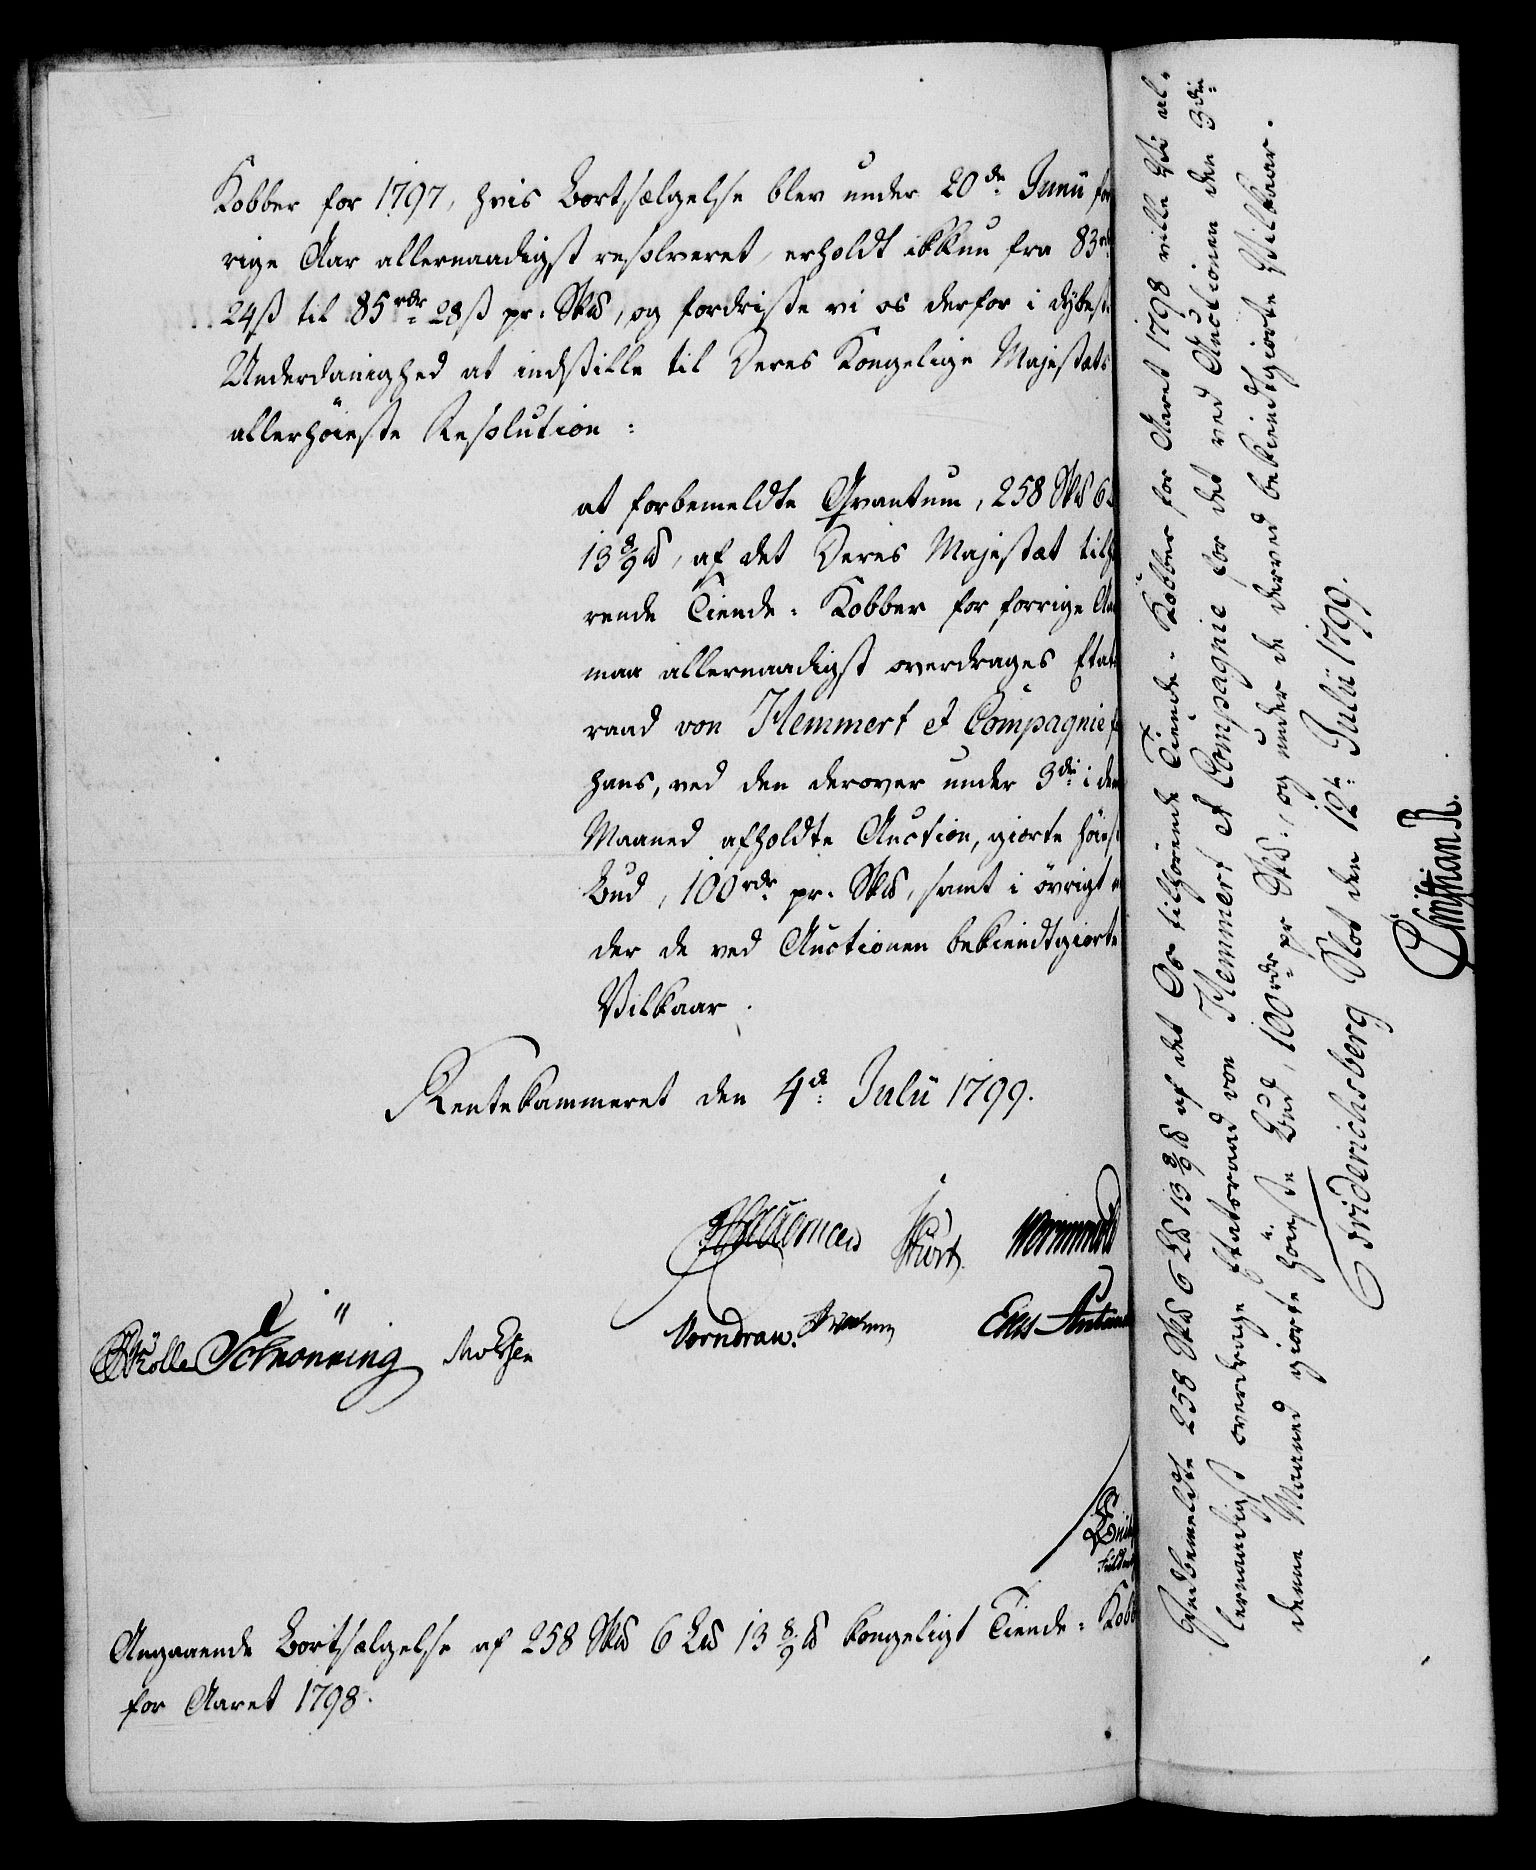 Kobber for 1797, hvis Bortsælgelse blev under 20de Junii for
rige Aar allernaadigst resolveret, erholdt ikkun fra 83rd
24ß til 85rdr 28ß pr. Sk℔, og fordriste vi os derfor i dybeste
Underdanighed at indstille til Deres Kongelige Majestæts
allerhöieste Resolution:
at forbemeldte Qvantum, 258 Sk℔ 6
13 8/9 ℔, af det Deres Majestæt tilhö
rende Tiende-Kobber for forrige Aar
maa allernaadigst overdrages Etats
raad von Hemmert et Compagnie f
hans, ved den derover under 3die i denne
Maaned afholdte Auction, giorte höieste
Bud, 100rdr pr. Sk℔, samt i övrigt
der de ved Auctionen bekiendtgiorte
Vilkaar.
Rentekammeret den 4de Julii 1799.
Wormskiold
Schrönning
Vorndran.
Angaaende Bortsælgelse af 258 Sk℔ 6 L℔ 13 8/9 ℔ kongeligt Tiende-Kobb
for Aaret 1798.
Vedbemeldte 258 Sk℔ 6 L℔ 13 8/9 ℔ af det Os tilhörende Tiende-Kobber for Aaret 1798 ville Vi al-
lernaadigst overdrage Etatsraad von Hemmert et Compagnie for det ved Auctionen den 3die
denne Maaned giorte höieste Bud, 100rdr pr Sk℔, og under de derved bekiendtgiorte Vilkaar.
Friderichsberg Slot den 12te Julii 1799.
Christian R.